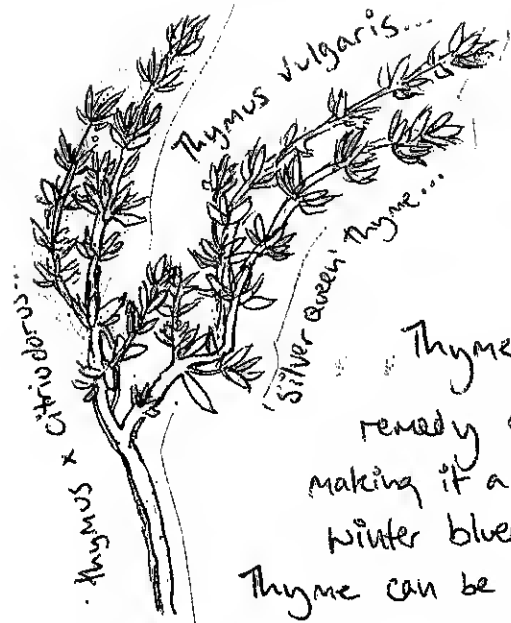 Thymus vulgaris...
Silver queen thyme...
Thymus x Citriodorus...
Thyme
remedy
making it a
winter blue
Thyme can be